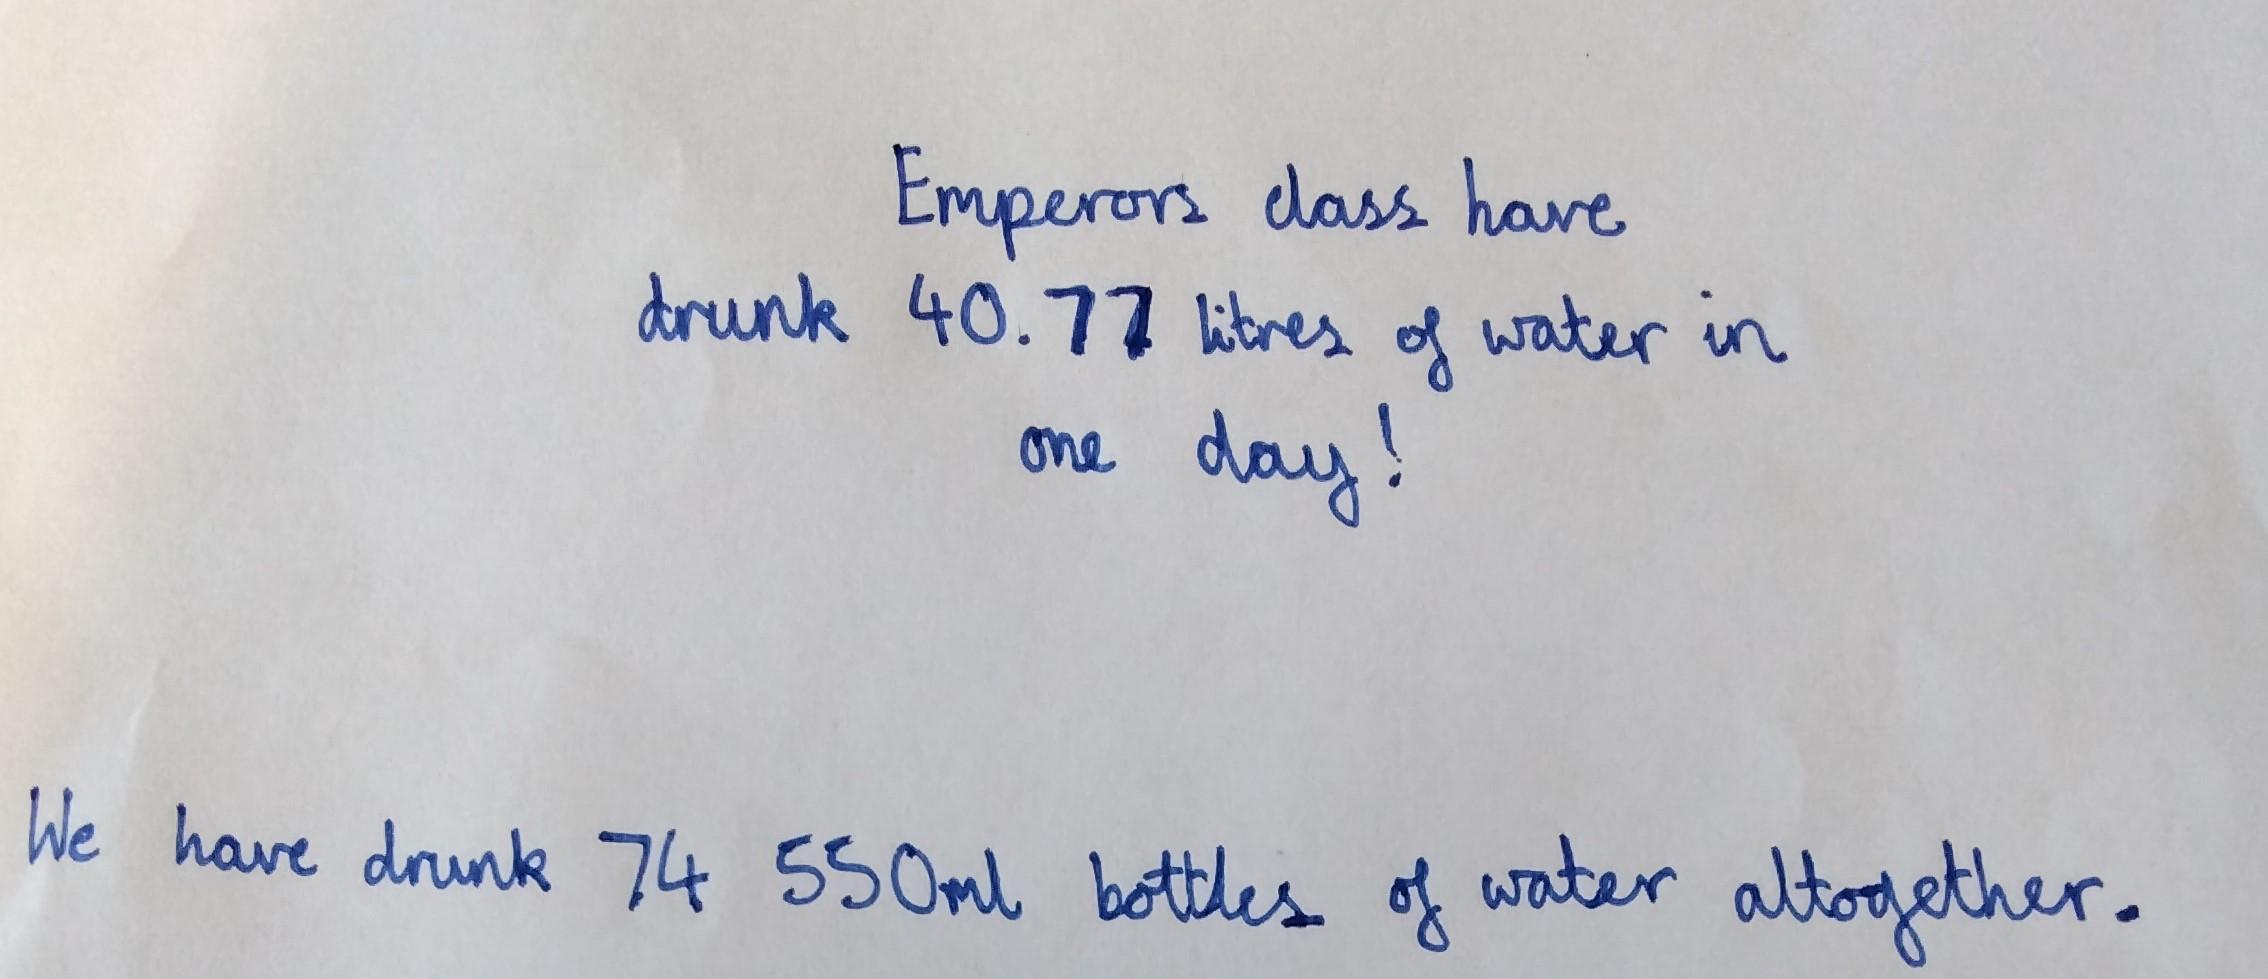 Emperors class have
drunk 40.77 litres of water in
one day!
We have drunk 74 550ml bottles of water altogether.